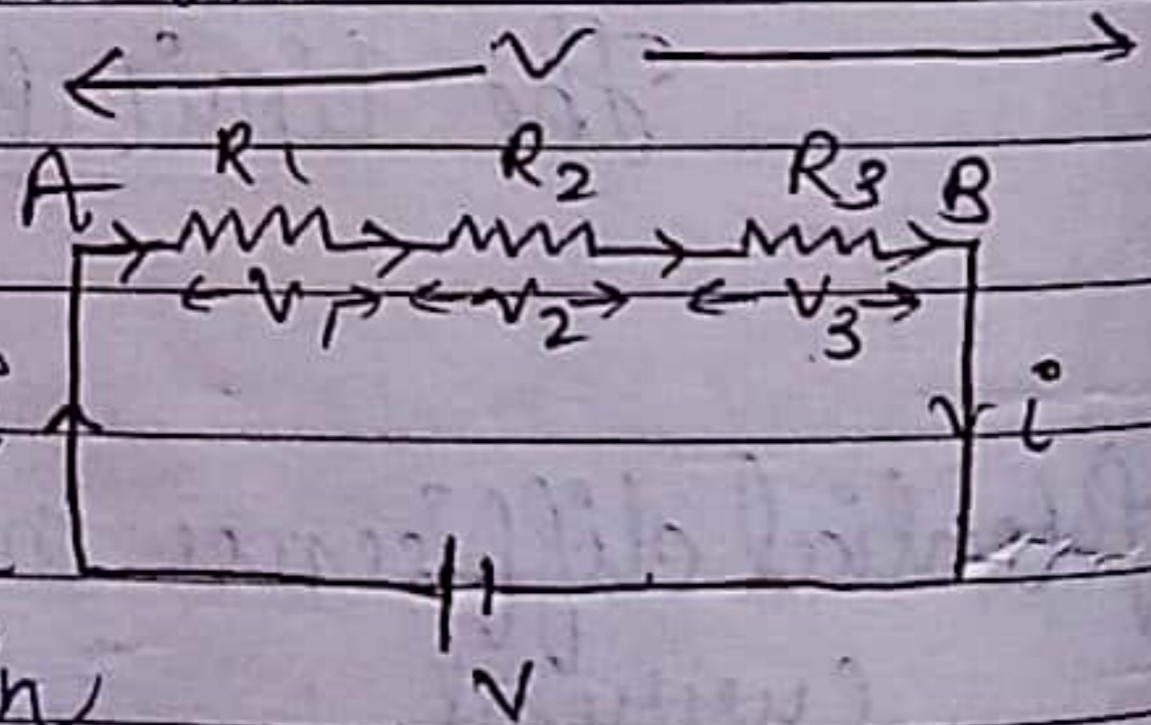 V
R1 R2 R3
A B
V1 V2 V3
i
V